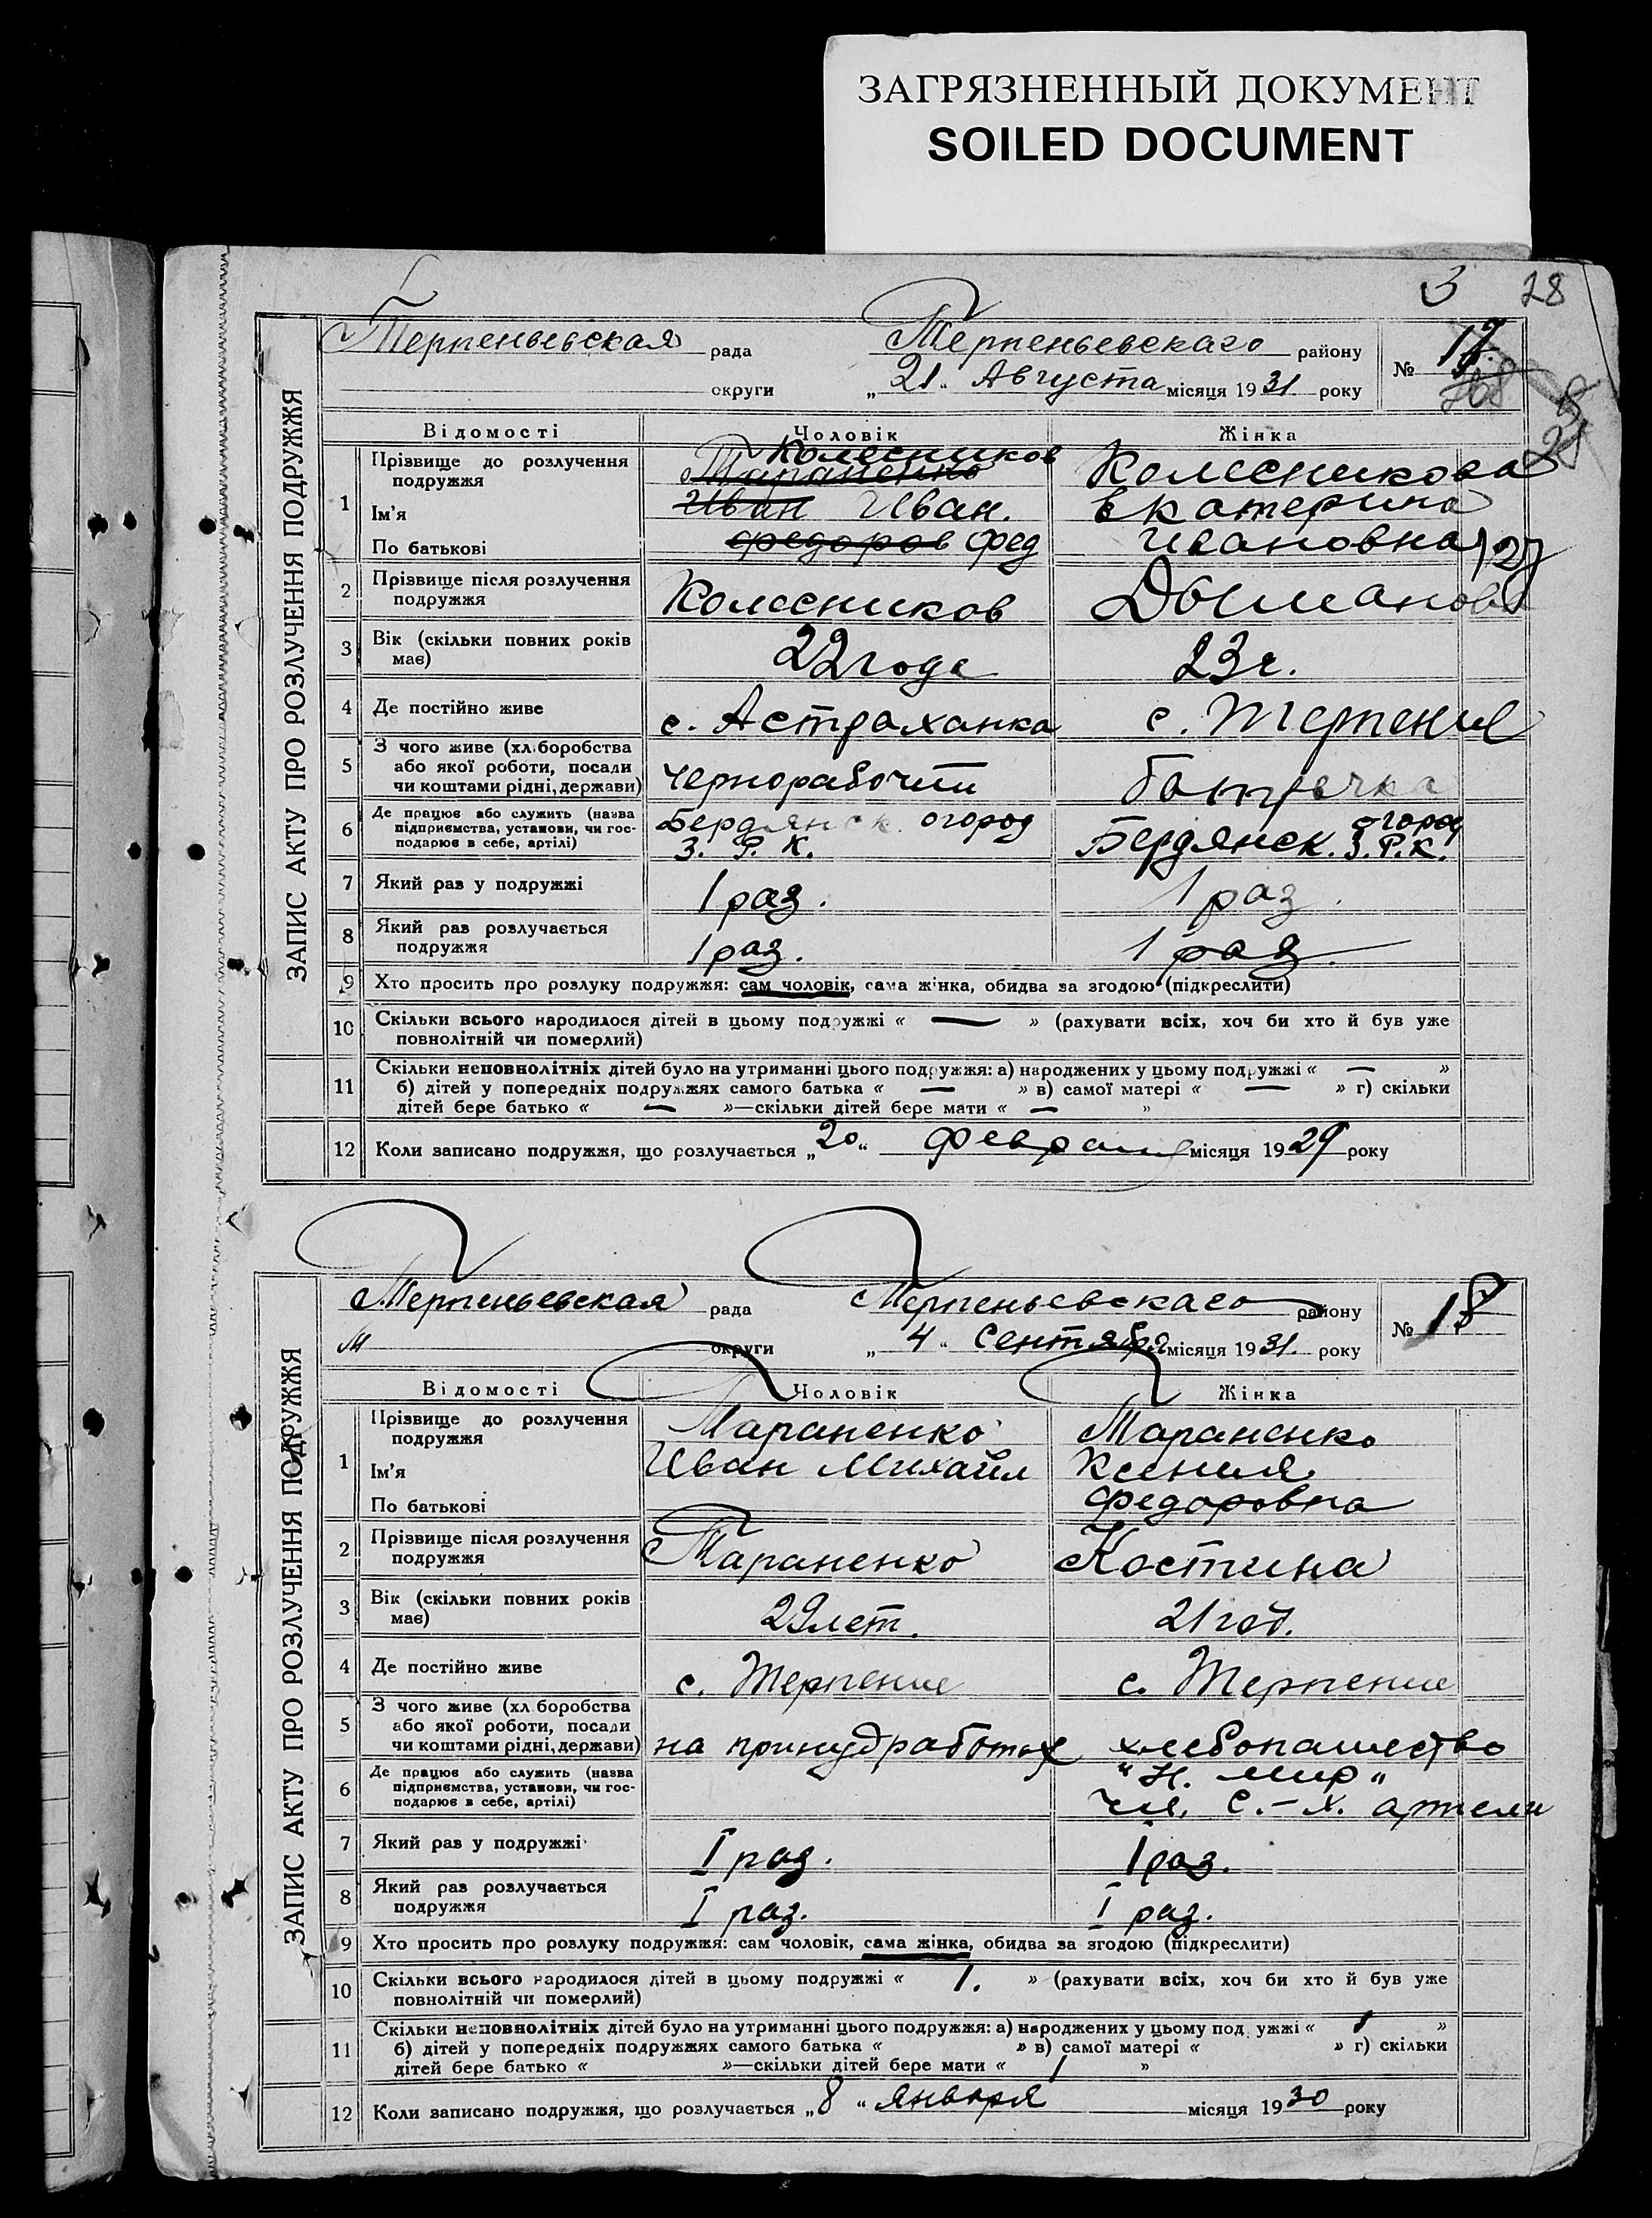 ЗАГРЯЗНЕННЫЙ ДОКУМЕНТ
SOILED DOCUMENT
3 28
ЗАПИС АКТУ ПРО РОЗЛУЧЕННЯ ПОДРУЖЖЯ
Терпеньевская рада Терпеньевскаго району № 17
округи „21“ Августа місяця 1931 року
Відомості Чоловік Жінка
Колесников
1 Прізвище до розлучення подружжя Тараненко Колесникова
Ім'я Иван Иван. Екатерина
По батькові федоров фед Ивановна
2 Прізвище після розлучення подружжя Колесников Дыманова
3 Вік (скільки повних років має) 22 года 23 г.
4 Де постійно живе с. Астраханка с. Терпение
5 З чого живе (хлборобства або якої роботи, посади чи коштами рідні, держави) чернорабочий
6 Де працює або служить (назва підприємства, установи, чи господарює в себе, артілі) Бердянск. огород З. Р. К. Бердянск. огород З.Р.К.
7 Який раз у подружжі 1 раз. 1 раз.
8 Який раз розлучається подружжя 1 раз. 1 раз.
9 Хто просить про розлуку подружжя: сам чоловік, сама жінка, обидва за згодою (підкреслити)
10 Скільки всього народилося дітей в цьому подружжі « — » (рахувати всіх, хоч би хто й був уже
повнолітній чи померлий)
11 Скільки неповнолітніх дітей було на утриманні цього подружжя: а) народжених у цьому подружжі « — »
б) дітей у попередніх подружжях самого батька « — » в) самої матері « — » г) скільки
дітей бере батько « — »—скільки дітей бере мати « — »
12 Коли записано подружжя, що розлучається „20“ февраля місяця 1929 року
ЗАПИС АКТУ ПРО РОЗЛУЧЕННЯ ПОДРУЖЖЯ
Терпеньевская рада Терпеньевскаго району № 18
М округи „4“ Сентября місяця 1931. року
Відомості Чоловік Жінка
1 Прізвище до розлучення подружжя Тараненко Тараненко
Ім'я Иван Михайл Ксения
По батькові Федоровна
2 Прізвище після розлучення подружжя Тараненко Костина
3 Вік (скільки повних років має) 29 лет. 21 год.
4 Де постійно живе с. Терпение с. Терпение
5 З чого живе (хлборобства або якої роботи, посади чи коштами рідні, держави) на принудработах хлебопашество
6 Де працює або служить (назва підприємства, установи, чи господарює в себе, артілі) "Н. мир" чл. с.-х. артели
7 Який раз у подружжі I раз. 1 раз.
8 Який раз розлучається подружжя I раз. I раз.
9 Хто просить про розлуку подружжя: сам чоловік, сама жінка, обидва за згодою (підкреслити)
10 Скільки всього народилося дітей в цьому подружжі « 1. » (рахувати всіх, хоч би хто й був уже
повнолітній чи померлий)
11 Скільки неповнолітніх дітей було на утриманні цього подружжя: а) народжених у цьому подружжі « 1 »
б) дітей у попередніх подружжях самого батька « » в) самої матері « » г) скільки
дітей бере батько « »—скільки дітей бере мати « 1 »
12 Коли записано подружжя, що розлучається „8“ января місяця 1930 року